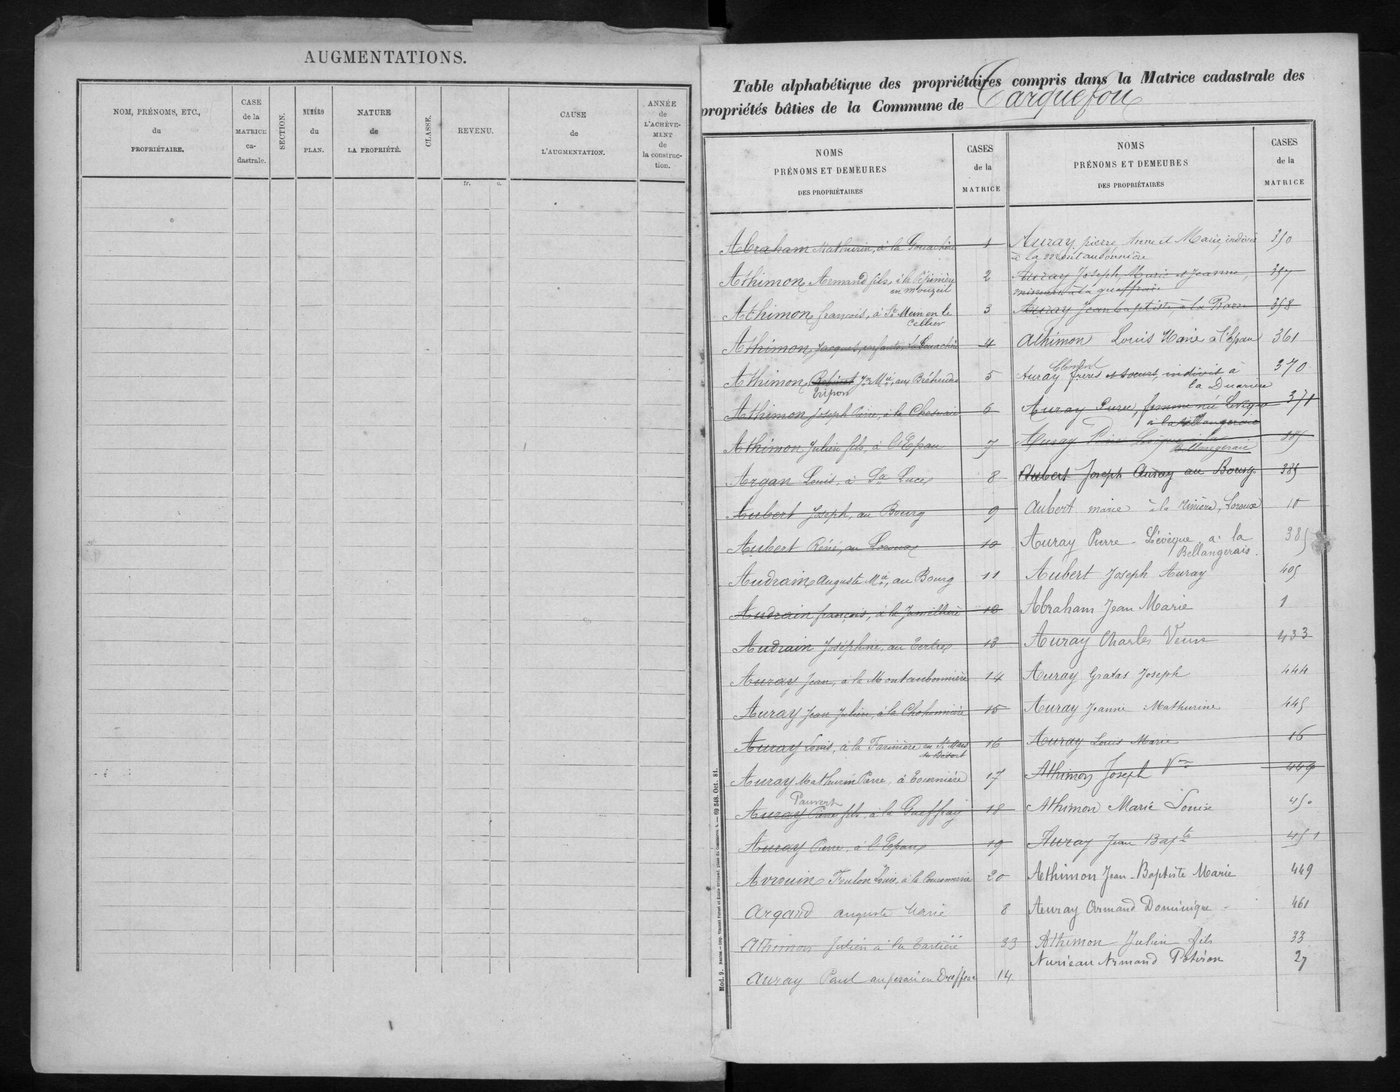 AUGMENTATIONS.
NOM, PRÉNOMS, ETC.,
du
PROPRIÉTAIRE.
CASE
de la
MATRICE
ca-
dastrale.
SECTION.
NUMÉRO
du
PLAN.
NATURE
de
LA PROPRIÉTÉ.
CLASSE.
REVENU.
fr. c.
CAUSE
de
L'AUGMENTATION.
ANNÉE
de
L'ACHÈVE-
MENT
de
la construc-
tion.
Table alphabétique des propriétaires compris dans la Matrice cadastrale des
propriétés bâties de la Commune de Carquefou
NOMS
PRÉNOMS ET DEMEURES
DES PROPRIÉTAIRES
CASES
de la
MATRICE
Abraham Mathurin, à la 1
Athimon Armand fils, à la Pépinière 2
en Mouzeil
Athimon françois, à St Mem en le 3
Cellier
Athimon Jacques, enfants, 4
Athimon, Jn Mie, aux 5
Athimon Joseph Pierre, à la Chesnaie 6
Athimon Julien fils, à l'Epau 7
Argan Louis, à Ste Luce 8
Aubert Joseph, au Bourg 9
Aubert René, au Loroux 10
Audrain Auguste Mie, au Bourg 11
Audrain françois, à la 12
Audrain Joséphine, au Tertre 13
Auray Jean, à la Montaubonnière 14
Auray Jean Julien, à la 15
Auray Louis, à la 16
Auray Mathurin Pierre, à 17
Pauvert
Auray Pierre fils, à la Gueffray 18
Auray Pierre, à l'Epau 19
Avrouin Toulon Louis, à la 20
Argand Auguste Marie 8
Athimon Julien à la 33
Auray Paul 14
NOMS
PRÉNOMS ET DEMEURES
DES PROPRIÉTAIRES
CASES
de la
MATRICE
Auray pierre, Anne et Marie, indivis 350
à la
Auray Joseph, Marie et Jeanne, 357
Auray Jean baptiste, à la Barre 358
Athimon Louis Marie à l'Epau 361
Auray frères et soeurs, indivis à 370
la
Auray Pierre, femme née Lévêque 371
à la Bellangerais
Auray Pierre Lévêque 385
Bellangerais
Aubert Joseph Auray au Bourg 385
Aubert marie à la Rivière, Loroux 10
Auray Pierre - Lévêque à la 385
Bellangerais.
Aubert Joseph Auray 405
Abraham Jean Marie 1
Auray Charles Veuve 433
Auray Gratas Joseph 444
Auray Jeanne Mathurine 445
Auray Louis Marie 16
Athimon Joseph Vve 449
Athimon Marie Louise 450
Auray Jean Bapte 451
Athimon Jean-Baptiste Marie 449
Auray Armand Dominique 461
Athimon Julien fils 33
Armand 27